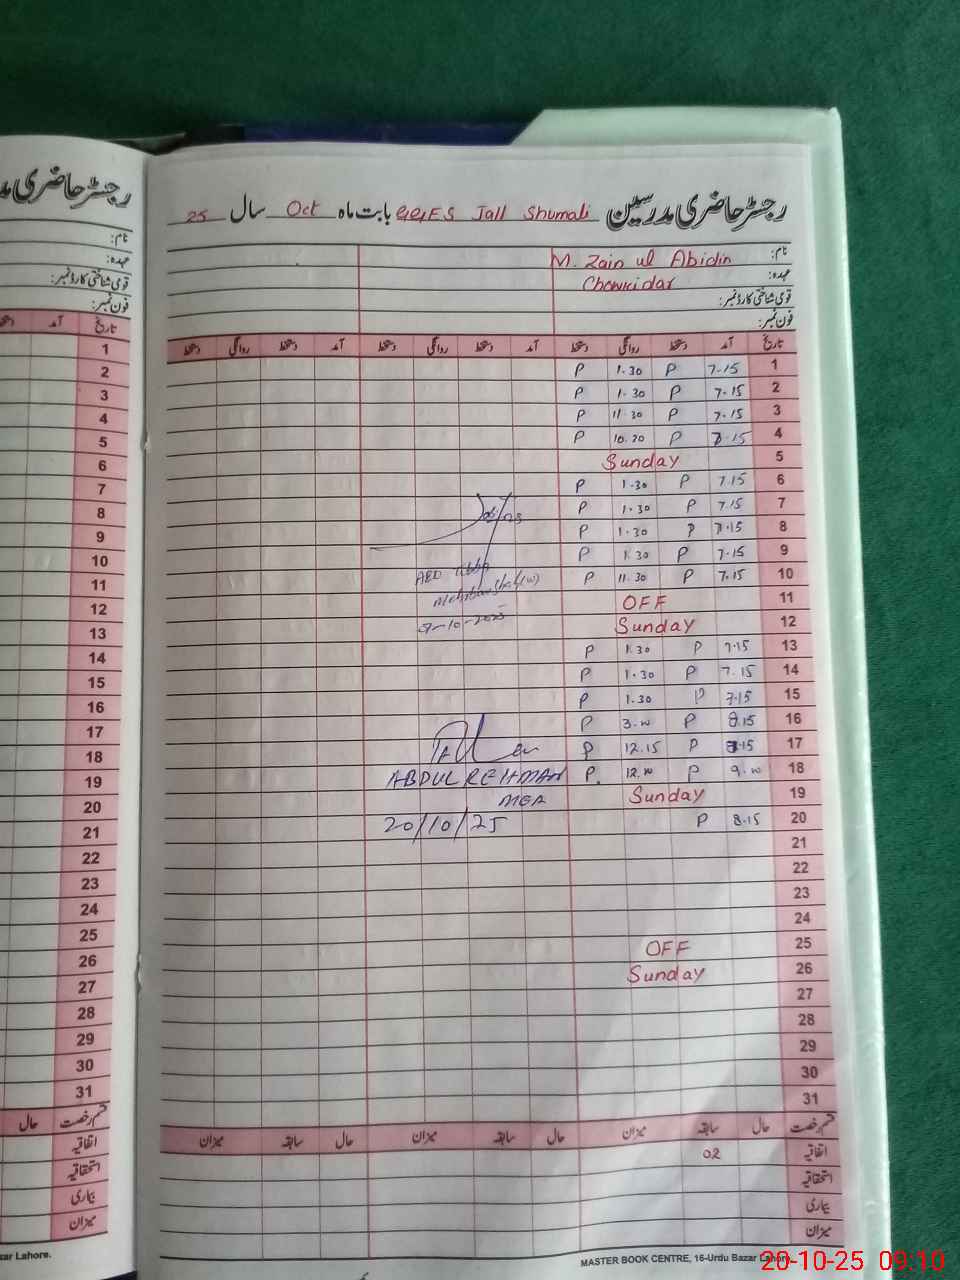 رجسٹر حاضری مدرسین GGES Jall Shumali بابت ماہ Oct سال 25
نام: M. Zain ul Abidin
عہدہ: Chowkidar
قومی شناختی کارڈ نمبر:
فون نمبر:
تاریخ آمد دستخط روانگی دستخط آمد دستخط روانگی دستخط آمد دستخط روانگی دستخط
1 7.15 P 1.30 P
2 7.15 P 1.30 P
3 7.15 P 11.30 P
4 7.15 P 10.20 P
5 Sunday
6 7.15 P 1.30 P
7 7.15 P 1.30 P
8 7.15 P 1.30 P
9 7.15 P 1.30 P
10 7.15 P 11.30 P
11 OFF
12 Sunday
13 7.15 P 1.30 P
14 7.15 P 1.30 P
15 7.15 P 1.30 P
16 8.15 P 3.00 P
17 8.15 P 12.15 P
18 9.00 P 12.00 P
19 Sunday
20 8.15 P
21
22
23
24
25 OFF
26 Sunday
27
28
29
30
31
AEO
ABDUL REHMAN
MEA
20/10/25
قسم رخصت حال سابقہ میزان حال سابقہ میزان حال سابقہ میزان
اتفاقیہ 02
استحقاقیہ
بیماری
میزان
MASTER BOOK CENTRE, 16-Urdu Bazar Lahore.
رجسٹر حاضری
نام:
عہدہ:
قومی شناختی کارڈ نمبر:
فون نمبر:
تاریخ آمد
1
2
3
4
5
6
7
8
9
10
11
12
13
14
15
16
17
18
19
20
21
22
23
24
25
26
27
28
29
30
31
قسم رخصت حال
اتفاقیہ
استحقاقیہ
بیماری
میزان
Lahore.
20-10-25 09:10